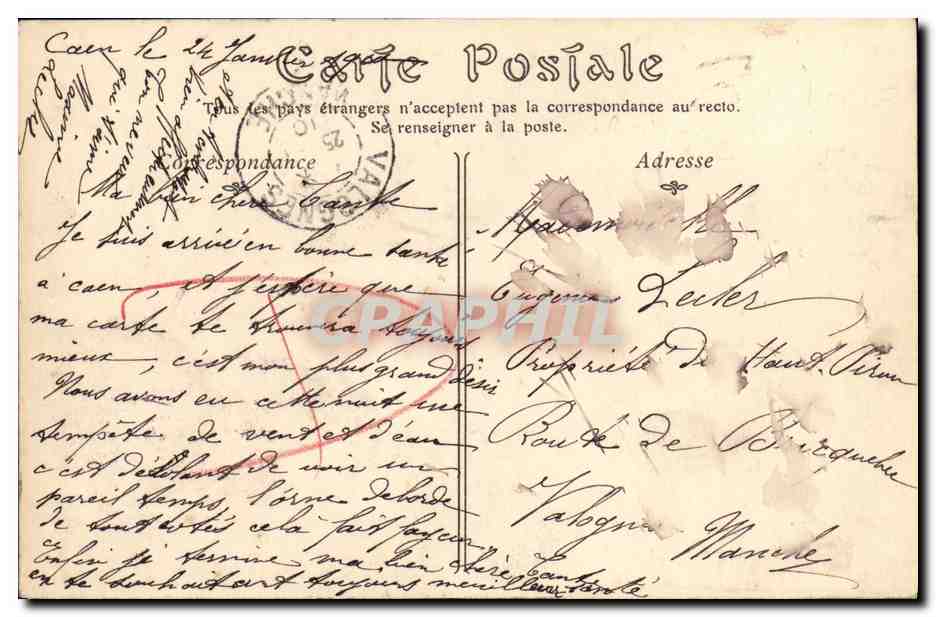 Caen le 24 Janvier
Carte Postale
Tous les pays étrangers n'acceptent pas la correspondance au recto.
Se renseigner à la poste.
Correspondance
Ma bien chère Tante
Je suis arrivé en bonne santé
à caen, et j'espère que
ma carte te trouvera toujours
mieux, c'est mon plus grand désir
Nous avons eu cette nuit une
tempête de vent et d'eau
c'est désolant de voir un
pareil temps, l'orne deborde
de tout cotés cela fait
Enfin je termine ma bien chère Tante
en te souhaitant toujours meilleure santé
bien affectueux
ton neveu
qui t'aime
Maxime
VALOGNES
25
10
CPAPHIL
Adresse
Eugenie Lecler
Propriété de Haut-Piron
Route de Bricquebec
Valognes
Manche